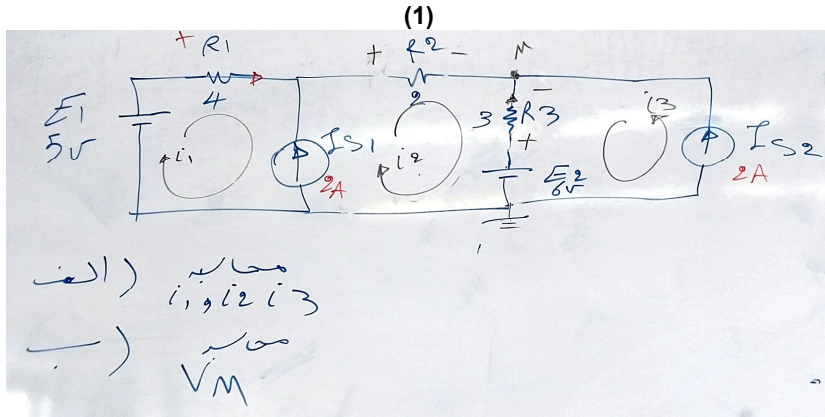 (1)
+ R1
4
E1
5v
i1
IS1
2A
+ R2 -
2
i2
M
-
3 R3
+
E2
6v
i3
IS2
2A
الف) محاسبه
i1 و i2 i3
ب) محاسبه
VM